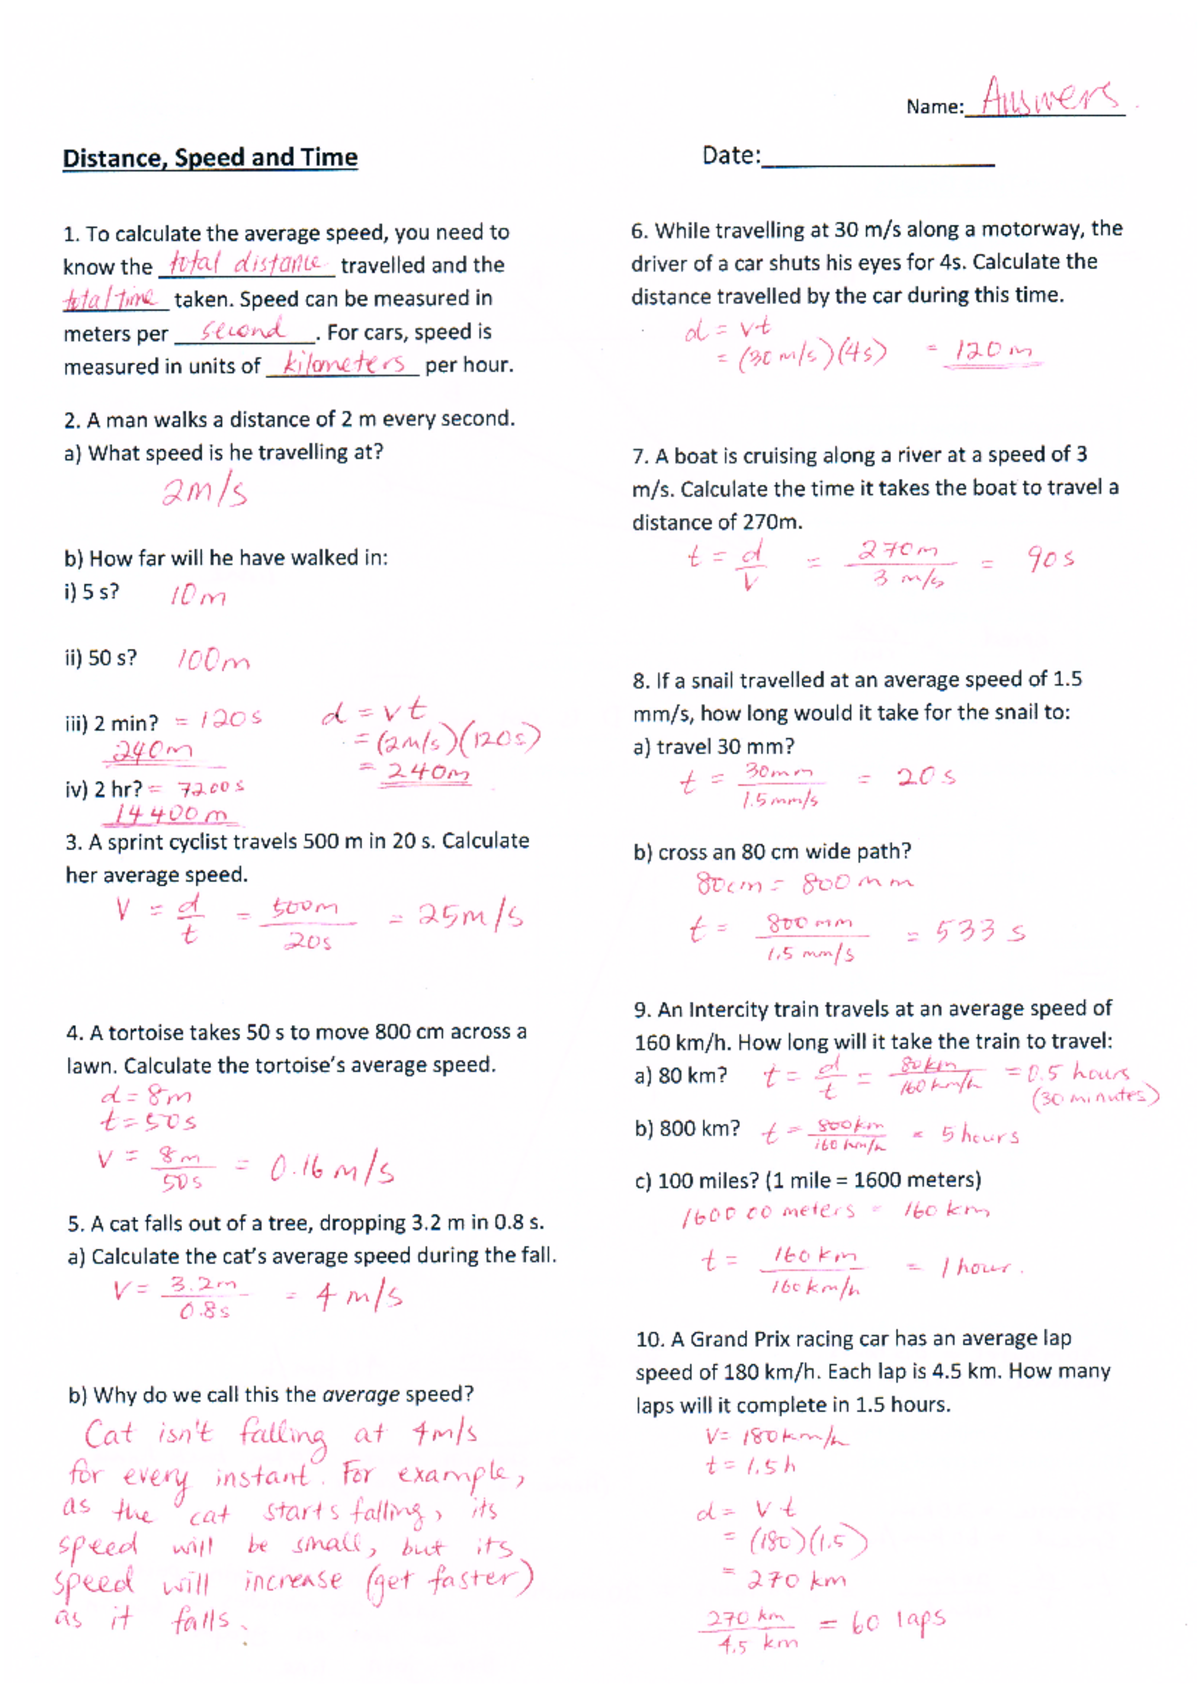 Name: Answers.
Distance, Speed and Time
Date:
1. To calculate the average speed, you need to
know the total distance travelled and the
total time taken. Speed can be measured in
meters per second. For cars, speed is
measured in units of kilometers per hour.
2. A man walks a distance of 2 m every second.
a) What speed is he travelling at?
2m/s
b) How far will he have walked in:
i) 5 s? 10m
ii) 50 s? 100m
iii) 2 min? = 120s
240m
d = vt
= (2m/s)(120s)
= 240m
iv) 2 hr? = 7200s
14400m
3. A sprint cyclist travels 500 m in 20 s. Calculate
her average speed.
V = d/t = 500m/20s = 25m/s
4. A tortoise takes 50 s to move 800 cm across a
lawn. Calculate the tortoise's average speed.
d = 8m
t = 50s
V = 8m/50s = 0.16 m/s
5. A cat falls out of a tree, dropping 3.2 m in 0.8 s.
a) Calculate the cat's average speed during the fall.
V = 3.2m/0.8s = 4 m/s
b) Why do we call this the average speed?
Cat isn't falling at 4m/s
for every instant. For example,
as the cat starts falling, its
speed will be small, but its
speed will increase (get faster)
as it falls.
6. While travelling at 30 m/s along a motorway, the
driver of a car shuts his eyes for 4s. Calculate the
distance travelled by the car during this time.
d = vt
= (30 m/s)(4s) = 120m
7. A boat is cruising along a river at a speed of 3
m/s. Calculate the time it takes the boat to travel a
distance of 270m.
t = d/V = 270m/3 m/s = 90s
8. If a snail travelled at an average speed of 1.5
mm/s, how long would it take for the snail to:
a) travel 30 mm?
t = 30mm/1.5mm/s = 20s
b) cross an 80 cm wide path?
80cm = 800mm
t = 800mm/1.5 mm/s = 533 s
9. An Intercity train travels at an average speed of
160 km/h. How long will it take the train to travel:
a) 80 km? t = d/t = 80km/160km/h = 0.5 hours
(30 minutes)
b) 800 km? t = 800km/160km/h = 5 hours
c) 100 miles? (1 mile = 1600 meters)
160000 meters = 160 km
t = 160km/160km/h = 1 hour.
10. A Grand Prix racing car has an average lap
speed of 180 km/h. Each lap is 4.5 km. How many
laps will it complete in 1.5 hours.
V = 180km/h
t = 1.5h
d = Vt
= (180)(1.5)
= 270 km
270 km/4.5 km = 60 laps